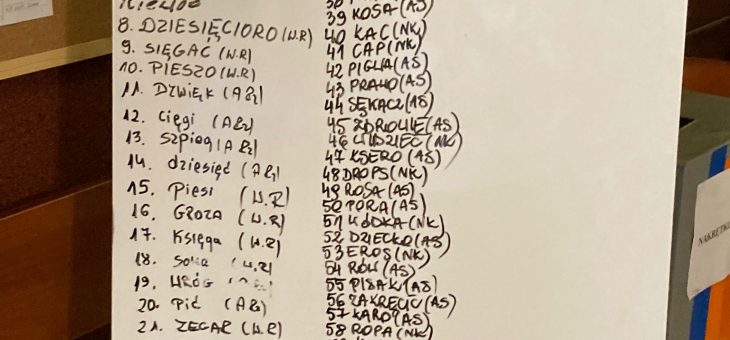 8. DZIESIĘCIORO (W.R)
9. SIĘGAĆ (W.R)
10. PIESZO (W.R)
11. DZWIĘK (AG)
12. Cięgi (AG)
13. Szpieg (AG)
14. dziesięć (AG)
15. Piesi (W.R)
16. GROZA (W.R)
17. Księga (W.R)
18. Sowa (W.R)
19. WRÓG
20. Pić (AG)
21. ZEGAR (W.R)
39 KOSA (AS)
40 KAC (NK)
41 CAP (NK)
42 PIGLIA (AS)
43 PRAWO (AS)
44 SĘKACZ (AS)
45 ZDROWIE (AS)
46 WIDZIEĆ (NK)
47 KSERO (AS)
48 DROPS (NK)
49 ROSA (AS)
50 PORA (AS)
51 WÓDKA (NK)
52 DZIECKO (AS)
53 EROS (NK)
54 RÓW (AS)
55 PISAK (AS)
56 ZAKRĘCIĆ (AS)
57 KARO (AS)
58 ROPA (NK)
NAKRĘTK